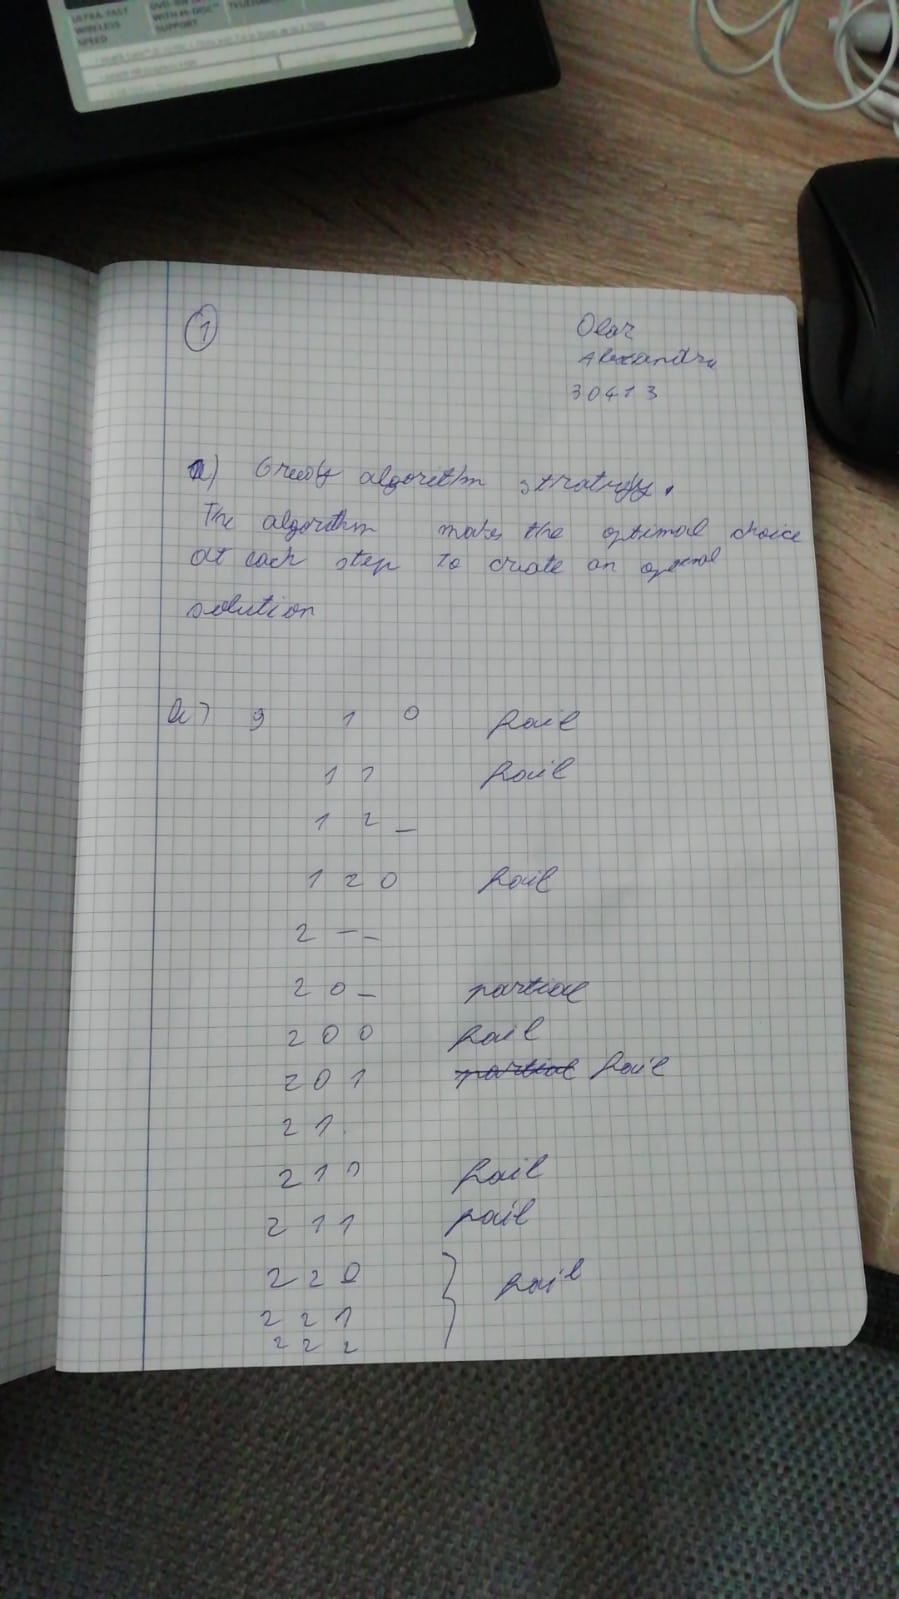 ULTRA-FAST
WIRELESS
SPEED
WITH M-DISC™
SUPPORT
1
Olar
Alexandra
30413
a) Greedy algorithm strategy.
The algorithm makes the optimal choice
at each step to create an optimal
solution
9 1 0 fail
1 1 fail
1 2 _
1 2 0 fail
2 _ _
2 0 _ partial
2 0 0 fail
2 0 1 partial fail
2 1 .
2 1 0 fail
2 1 1 fail
2 2 0 } fail
2 2 1
2 2 2